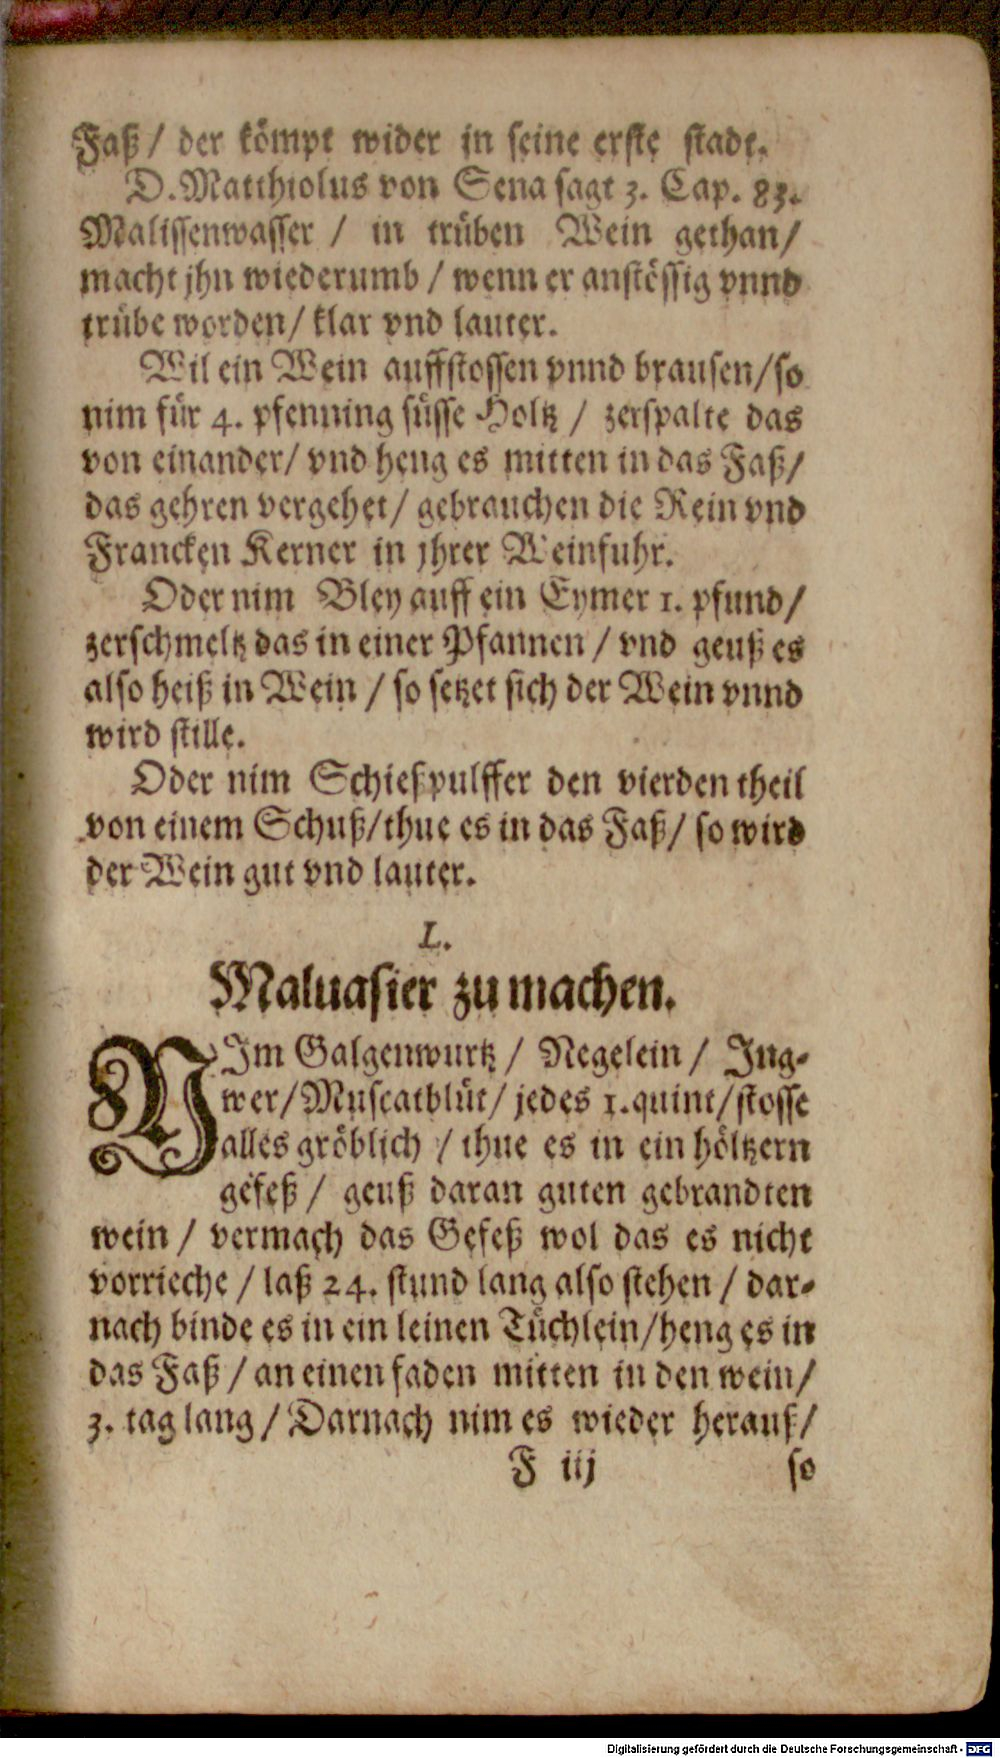 Faß / der kömpt wider in seine erste stadt.
D. Matthiolus von Sena sagt 3. Cap. 83.
Malissenwasser / in trüben Wein gethan /
macht jhn wiederumb / wenn er anstössig vnnd
trübe worden / klar vnd lauter.
Wil ein Wein auffstossen vnnd brausen / so
nim für 4. pfenning süsse Holtz / zerspalte das
von einander / vnd heng es mitten in das Faß /
das gehren vergehet / gebrauchen die Rein vnd
Francken Kerner in jhrer Weinfuhr.
Oder nim Bley auff ein Eymer 1. pfund /
zerschmeltz das in einer Pfannen / vnd geuß es
also heiß in Wein / so setzet sich der Wein vnnd
wird stille.
Oder nim Schießpulffer den vierden theil
von einem Schuß / thue es in das Faß / so wird
der Wein gut vnd lauter.
L.
Maluasier zu machen.
NIm Galgenwurtz / Negelein / Ing-
wer / Muscatblüt / jedes 1. quint / stosse
alles gröblich / thue es in ein höltzern
gefeß / geuß daran guten gebrandten
wein / vermach das Gefeß wol das es nicht
vorrieche / laß 24. stund lang also stehen / dar-
nach binde es in ein leinen Tüchlein / heng es in
das Faß / an einen faden mitten in den wein /
3. tag lang / Darnach nim es wieder herauß /
F iij so
Digitalisierung gefördert durch die Deutsche Forschungsgemeinschaft - DFG